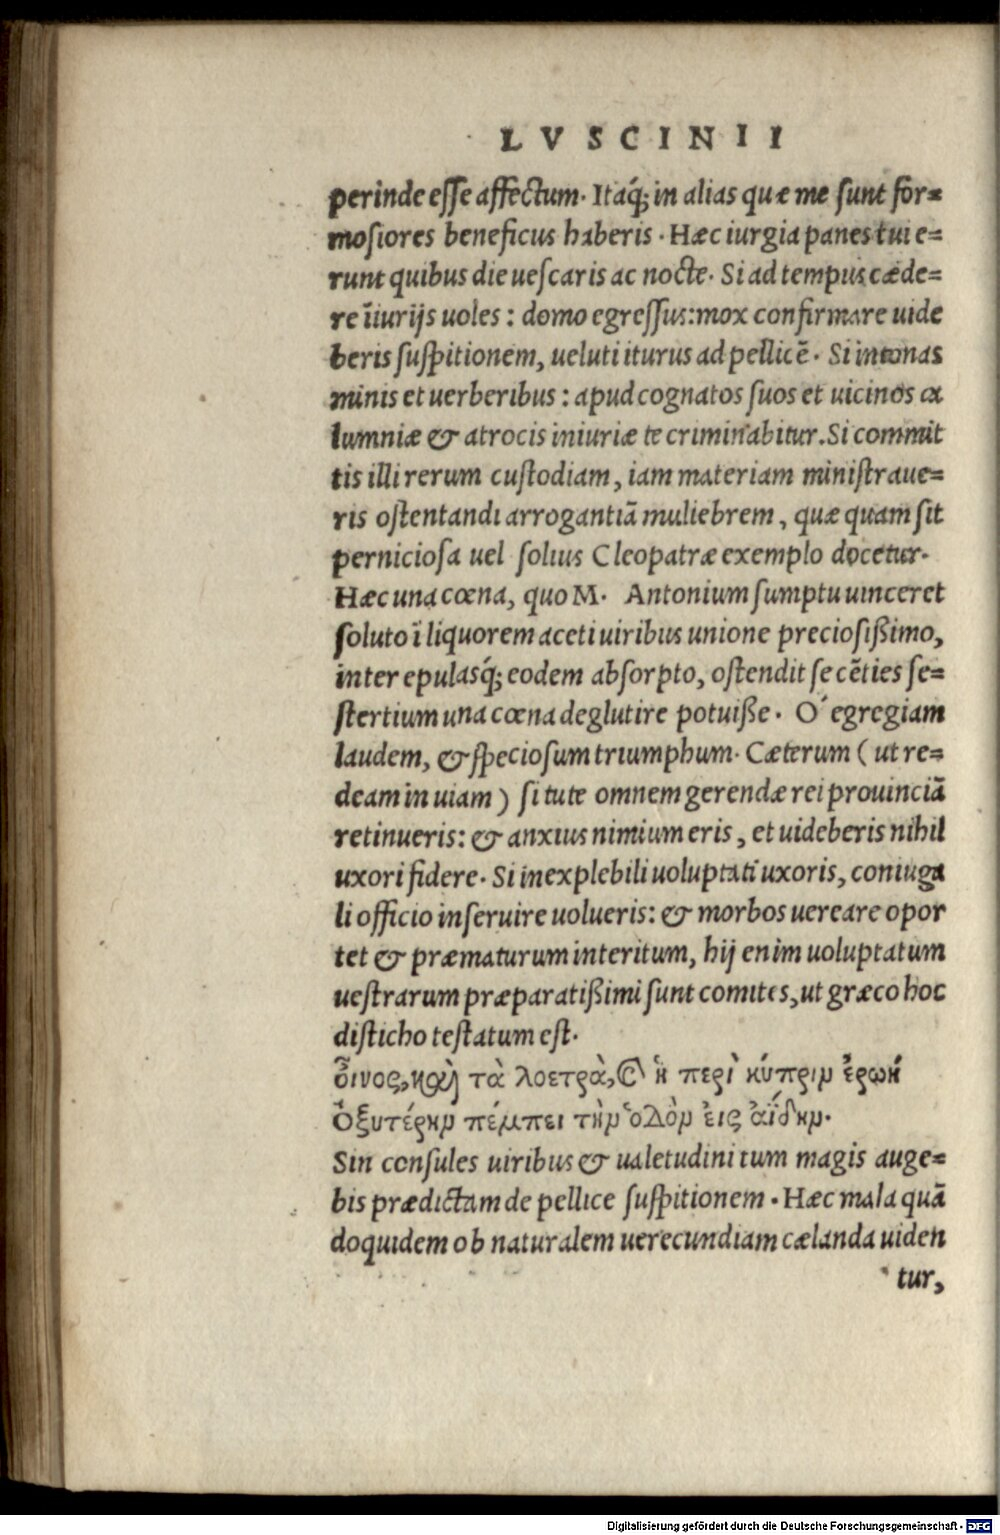 LVSCINII
perinde eſſe affectum. Itaq́; in alias quæ me ſunt for=
moſiores beneficus haberis. Hæc iurgia panes tui e=
runt quibus die ueſcaris ac nocte. Si ad tempus cæde=
re ĩiurijs uoles: domo egreſſus: mox confirmare uide
beris ſuſpitionem, ueluti iturus ad pellicẽ. Si intonas
minis et uerberibus: apud cognatos ſuos et uicinos ca
lumniæ & atrocis iniuriæ te criminabitur. Si commit
tis illi rerum cuſtodiam, iam materiam miniſtraue=
ris oſtentandi arrogantiã muliebrem, quæ quam ſit
pernicioſa uel ſolius Cleopatræ exemplo docetur.
Hæc una cœna, quo M. Antonium ſumptu uinceret
ſoluto ĩ liquorem aceti uiribus unione precioſißimo,
inter epulasq́; eodem abſorpto, oſtendit ſe cẽties ſe=
ſtertium una cœna deglutire potuiße. O´ egregiam
laudem, & ſpecioſum triumphum. Cæterum (ut re=
deam in uiam) ſi tute omnem gerendæ rei prouinciã
retinueris: & anxius nimium eris, et uideberis nihil
uxori fidere. Si inexplebili uoluptati uxoris, coniuga
li officio inſeruire uolueris: & morbos uereare opor
tet & præmaturum interitum, hij enim uoluptatum
ueſtrarum præparatißimi ſunt comites, ut græco hoc
diſticho teſtatum eſt.
ὄινος, καὶ τὰ λοετρὰ, καὶ ἡ περὶ κύπριν ἐρωὴ
Ὀξυτέρην πέμπει τὴν ὁδὸν ἐις ἀΐδην.
Sin conſules uiribus & ualetudini tum magis auge=
bis prædictam de pellice ſuſpitionem. Hæc mala quã
doquidem ob naturalem uerecundiam cælanda uiden
tur,
Digitalisierung gefördert durch die Deutsche Forschungsgemeinschaft - DFG